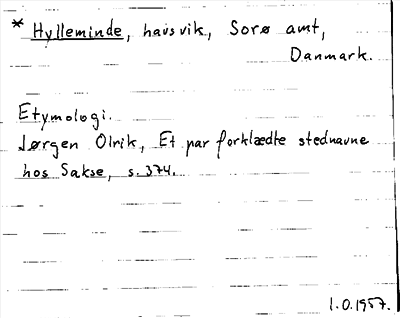 * Hylleminde, havsvik, Sorø amt,
Danmark.
Etymologi.
Jørgen Olrik, Et par forklædte stednavne
hos Sakse, s. 374.
1.O.1957.